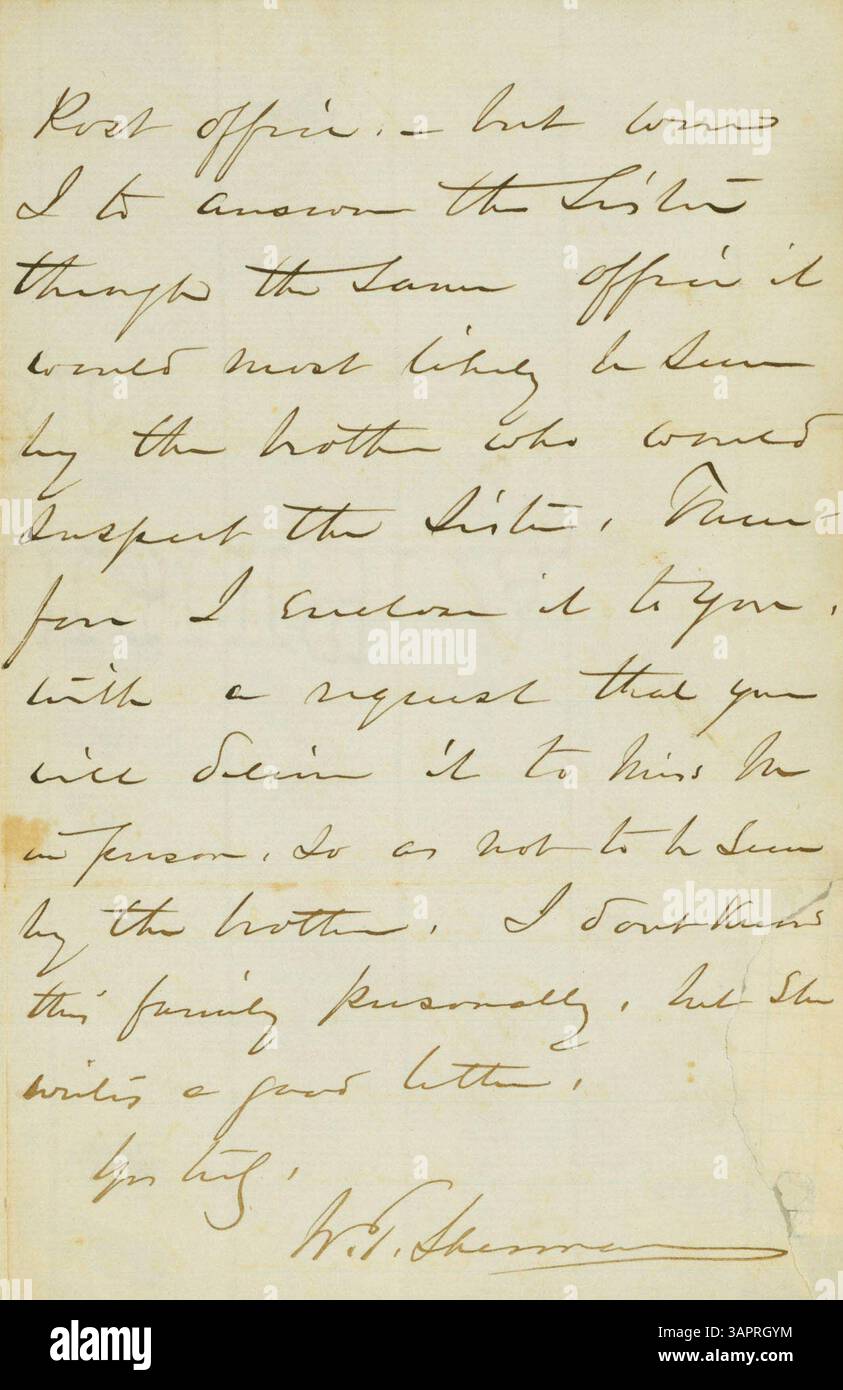 Post office. - but were
I to answer the Sister
through the same office it
would most likely be seen
by the brother who would
suspect the Sister. There-
fore I enclose it to you.
with a request that you
will deliver it to Miss M
in person. so as not to be seen
by the brother. I dont Know
this family personally, but She
writes a good letter.
Yrs truly,
W. T. Sherman
alamy
Image ID: 3APRGYM
www.alamy.com